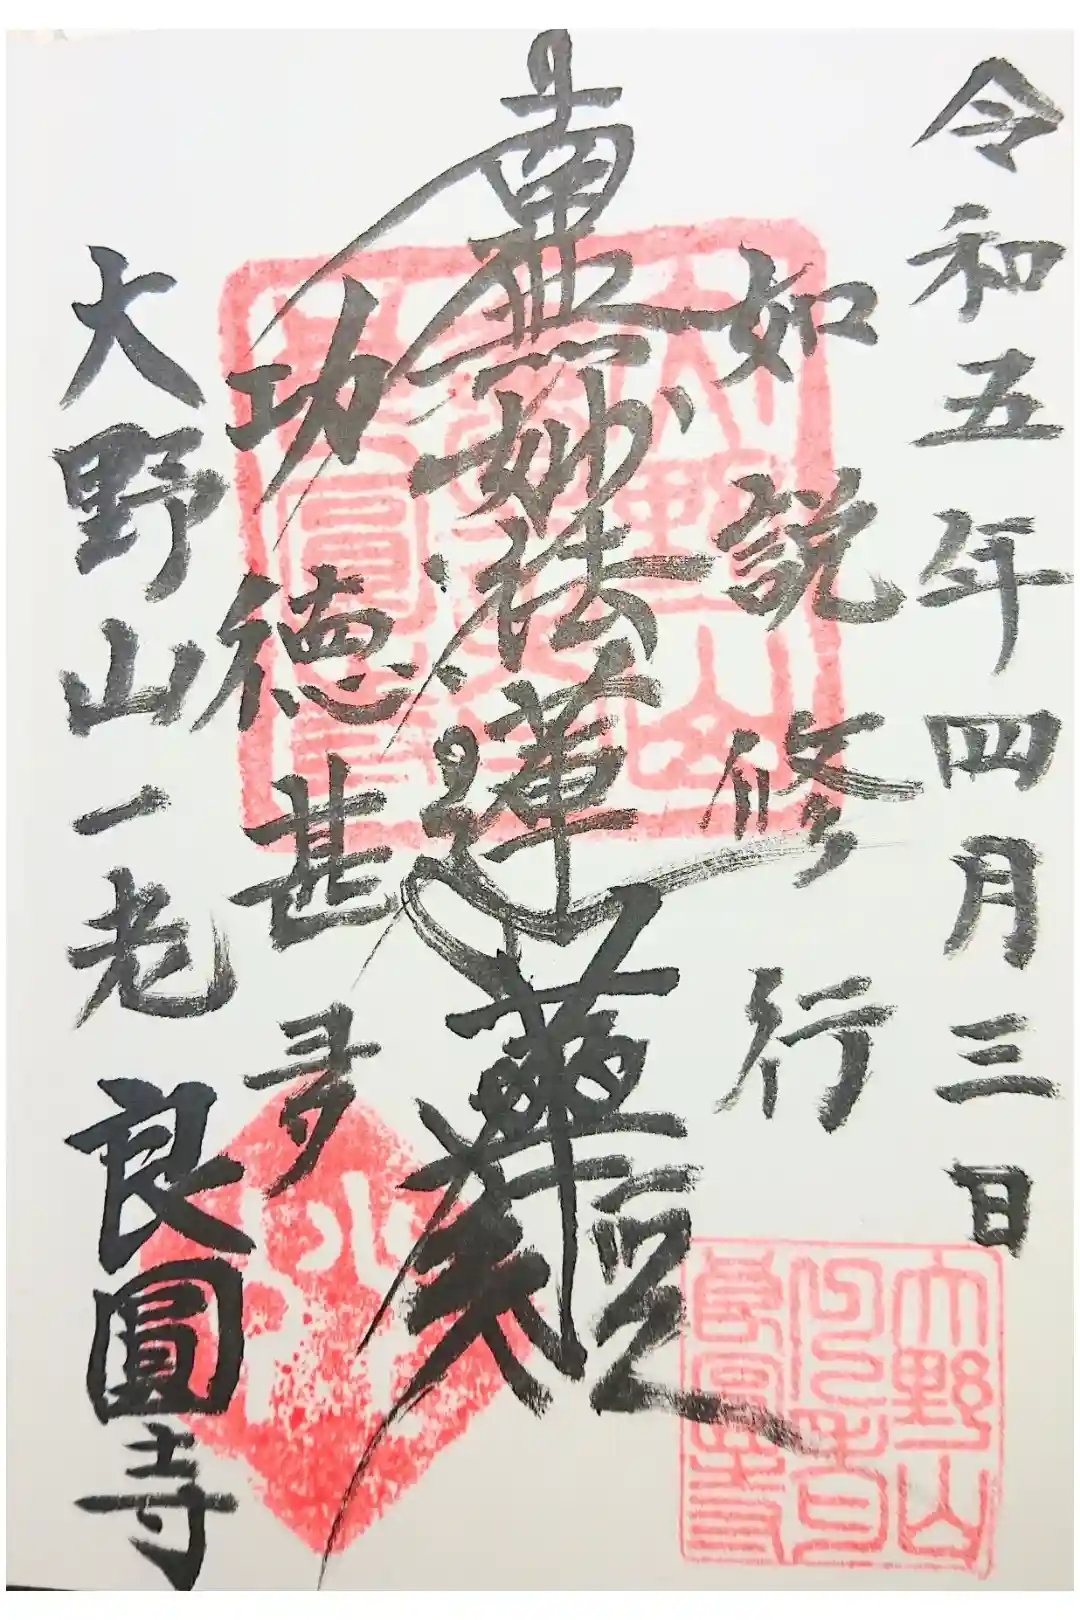 令和五年四月三日
如説修行
南無妙法蓮華経
功徳甚多
大野山一老 良圓寺
大野山
良圓寺